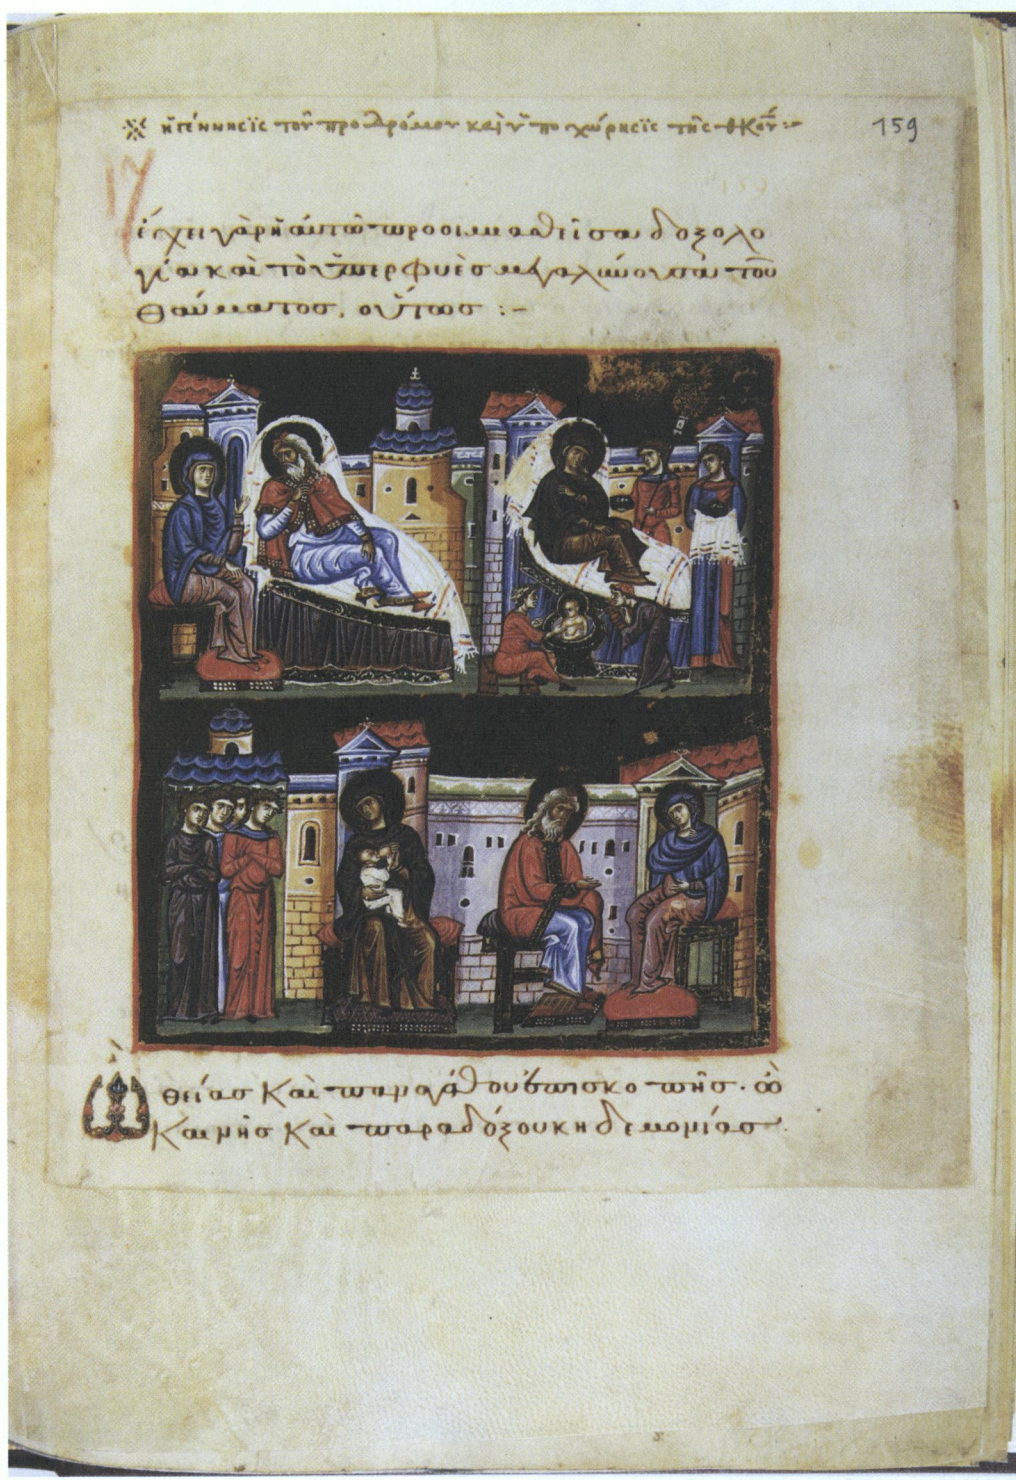 ※ ἡ γέννησϊς τοῦ προδρόμου καὶ ὑποχώρησϊς τῆς θκου :-
159
ἔχει γὰρ ἡ αὐτῶ προοιμιασθεῖσα δοξολο
γία καὶ τὸ ὑπερφυὲσ μεγαλύνουσα τοῦ
θαύματοσ, οὕτωσ :-
Ὢ θείασ καὶ παναγάθου ἐπισκοπῆσ· ὢ
καινῆσ καὶ παραδόξου κηδεμονίασ